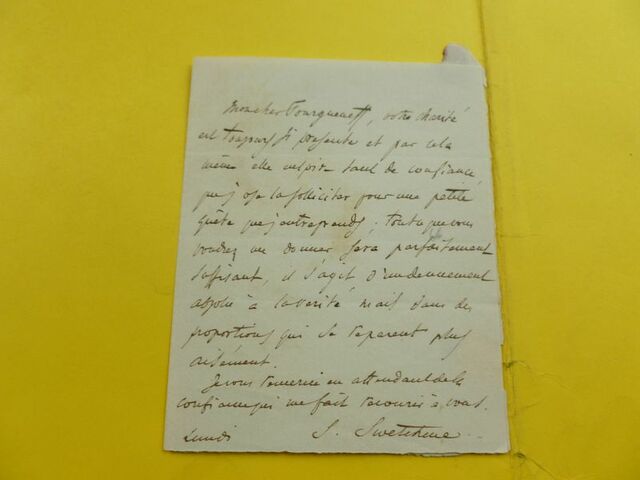 Mon cher Tourgueneff, votre charité
est toujours si présente et par cela
même elle inspire tant de confiance,
que j'ose la solliciter pour une petite
quête que j'entreprends; tout ce que vous
voudrez me donner sera parfaitement
suffisant, il s'agit d'un dénuement
absolu à la vérité, mais dans des
proportions qui se réparent plus
aisément.
Je vous remercie en attendant de la
confiance qui me fait recourir à vous.
Lundi S. Swetchine